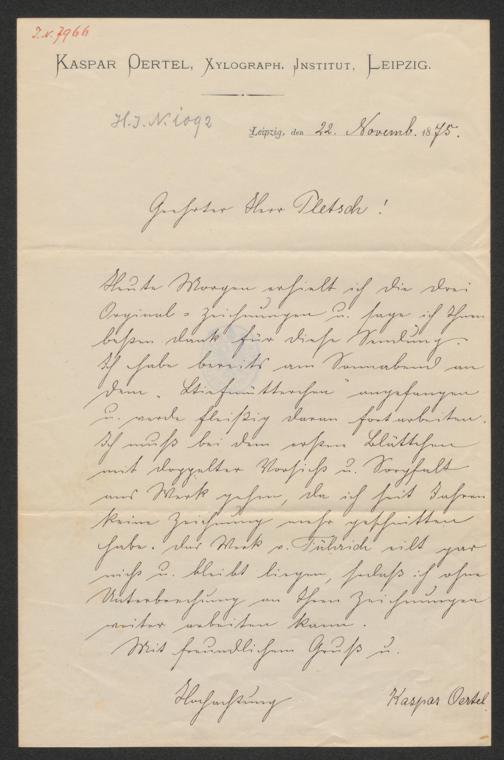 I.N. 7966
KASPAR OERTEL, XYLOGRAPH. INSTITUT, LEIPZIG.
H.I.N. 1092
Leipzig, den 22. Novemb. 1875.
Geehrter Herr Pletsch!
Heute Morgen erhielt ich die drei
Orginal-Zeichnungen u. sage ich Ihnen
besten Dank für diese Sendung.
Ich habe bereits am Sonnabend an
dem „Stiefmütterchen" angefangen
u. werde fleißig daran fortarbeiten.
Ich muß bei dem ersten Blättchen
mit doppelter Vorsicht u. Sorgfalt
ans Werk gehen, da ich seit Jahren
keine Zeichnung mehr geschnitten
habe. Das Werk v. Führich eilt gar
nicht u. bleibt liegen, sodaß ich ohne
Unterbrechung an Ihren Zeichnungen
weiter arbeiten kann.
Mit freundlichem Gruß u.
Hochachtung
Kaspar Oertel